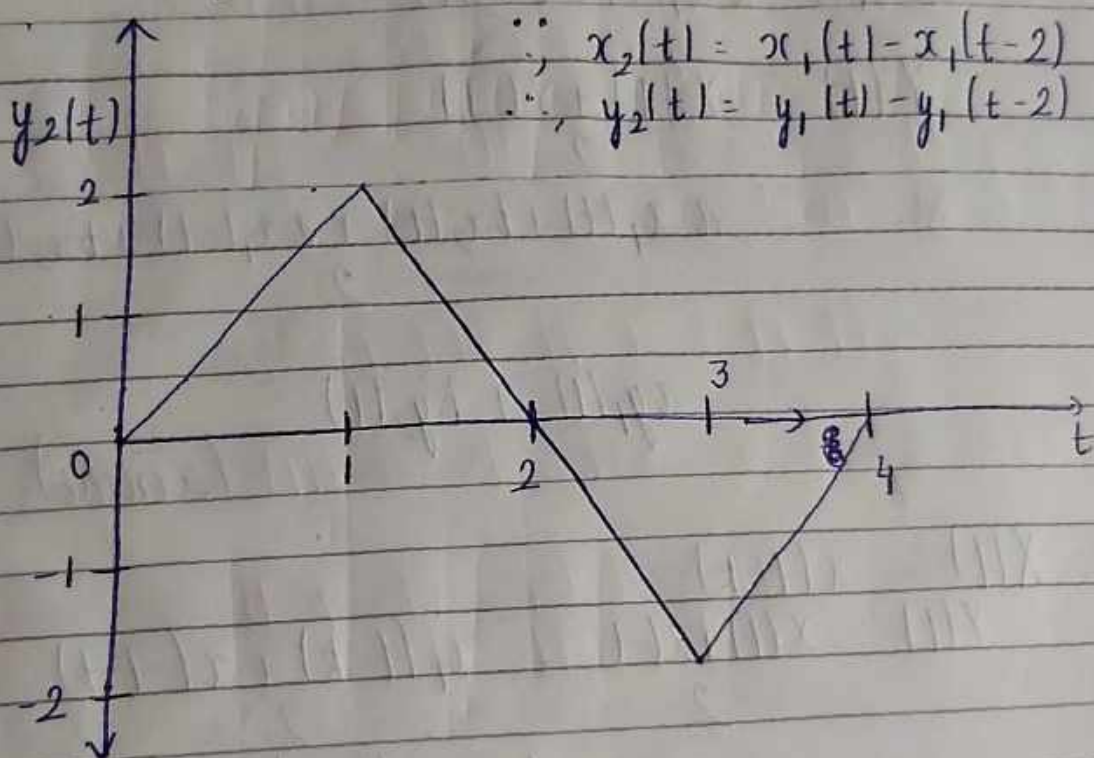 ∵, x₂(t) = x₁(t) - x₁(t-2)
∴, y₂(t) = y₁(t) - y₁(t-2)
y₂(t)
2
1
3
0
1
2
4
t
-1
-2